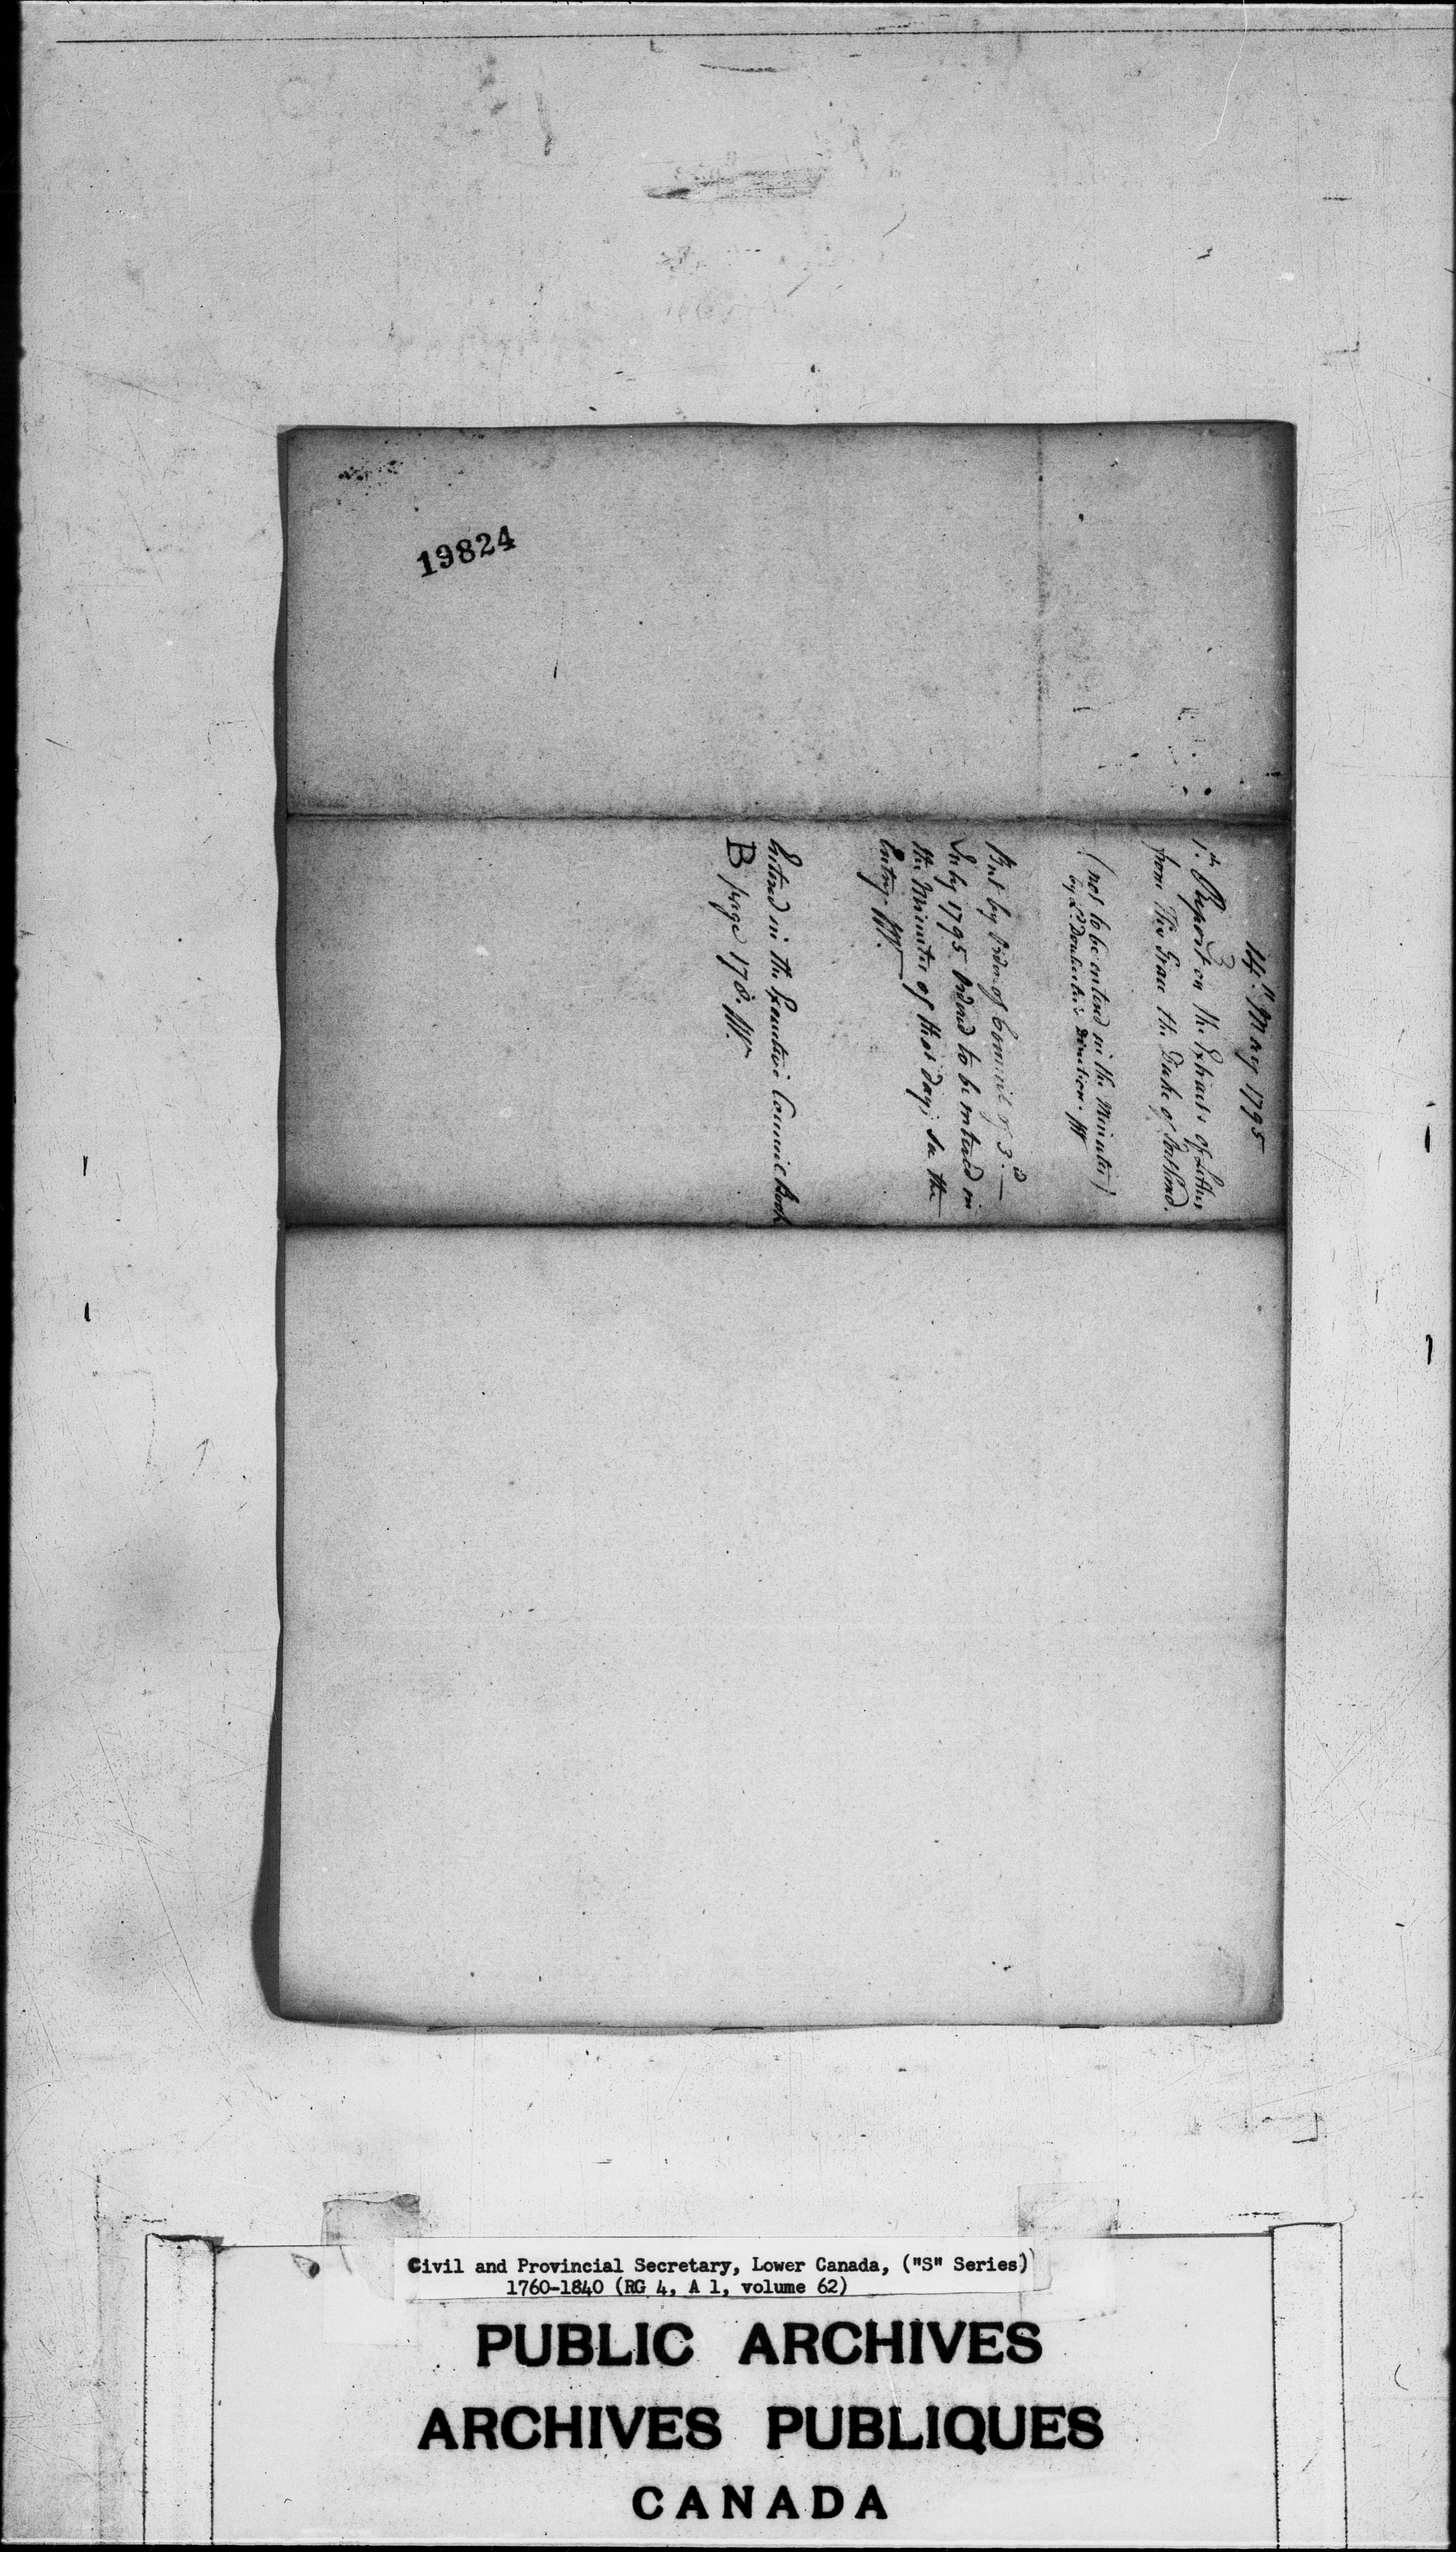 19824
14th May 1795
1st Report on the Extracts of Letters
from His Grace the Duke of Portland.
(not to be entered in the Minutes)
by Ld Dorchester's Direction. HW
But by Order of Council of 3d
July 1795 Ordered to be entered in
the Minutes of this day; see the
Entry HW.
Entered in the Executive Council Book
B page 178. HW.
Civil and Provincial Secretary, Lower Canada, ("S" Series)
1760-1840 (RG 4, A 1, volume 62)
PUBLIC ARCHIVES
ARCHIVES PUBLIQUES
CANADA